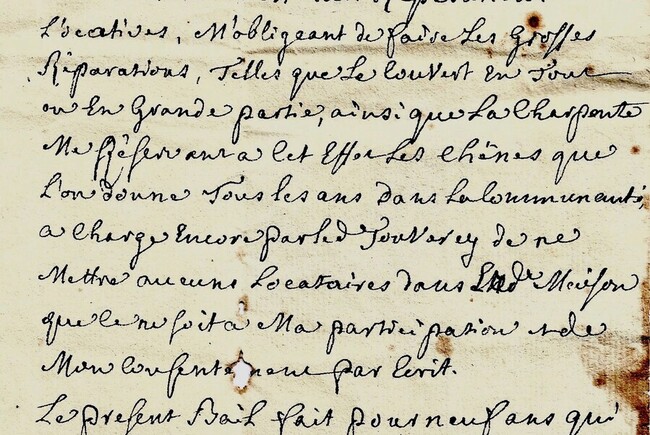 Locatives, M'obligeant de faire Les Grosses
Réparations, Telles que Le Couvert En Tout
ou En Grande partie, ainsi que La Charpente
Me Réservant a Cet Effet Les Chênes que
L'on donne Tous les ans dans La Communauté,
a Charge Encore par Led Jouverey de ne
Mettre aucuns Locataires dans Lad.e Maison
que Ce ne soit a Ma participation et de
Mon Consentement par Ecrit.
Le present Bail fait pour neuf ans qui